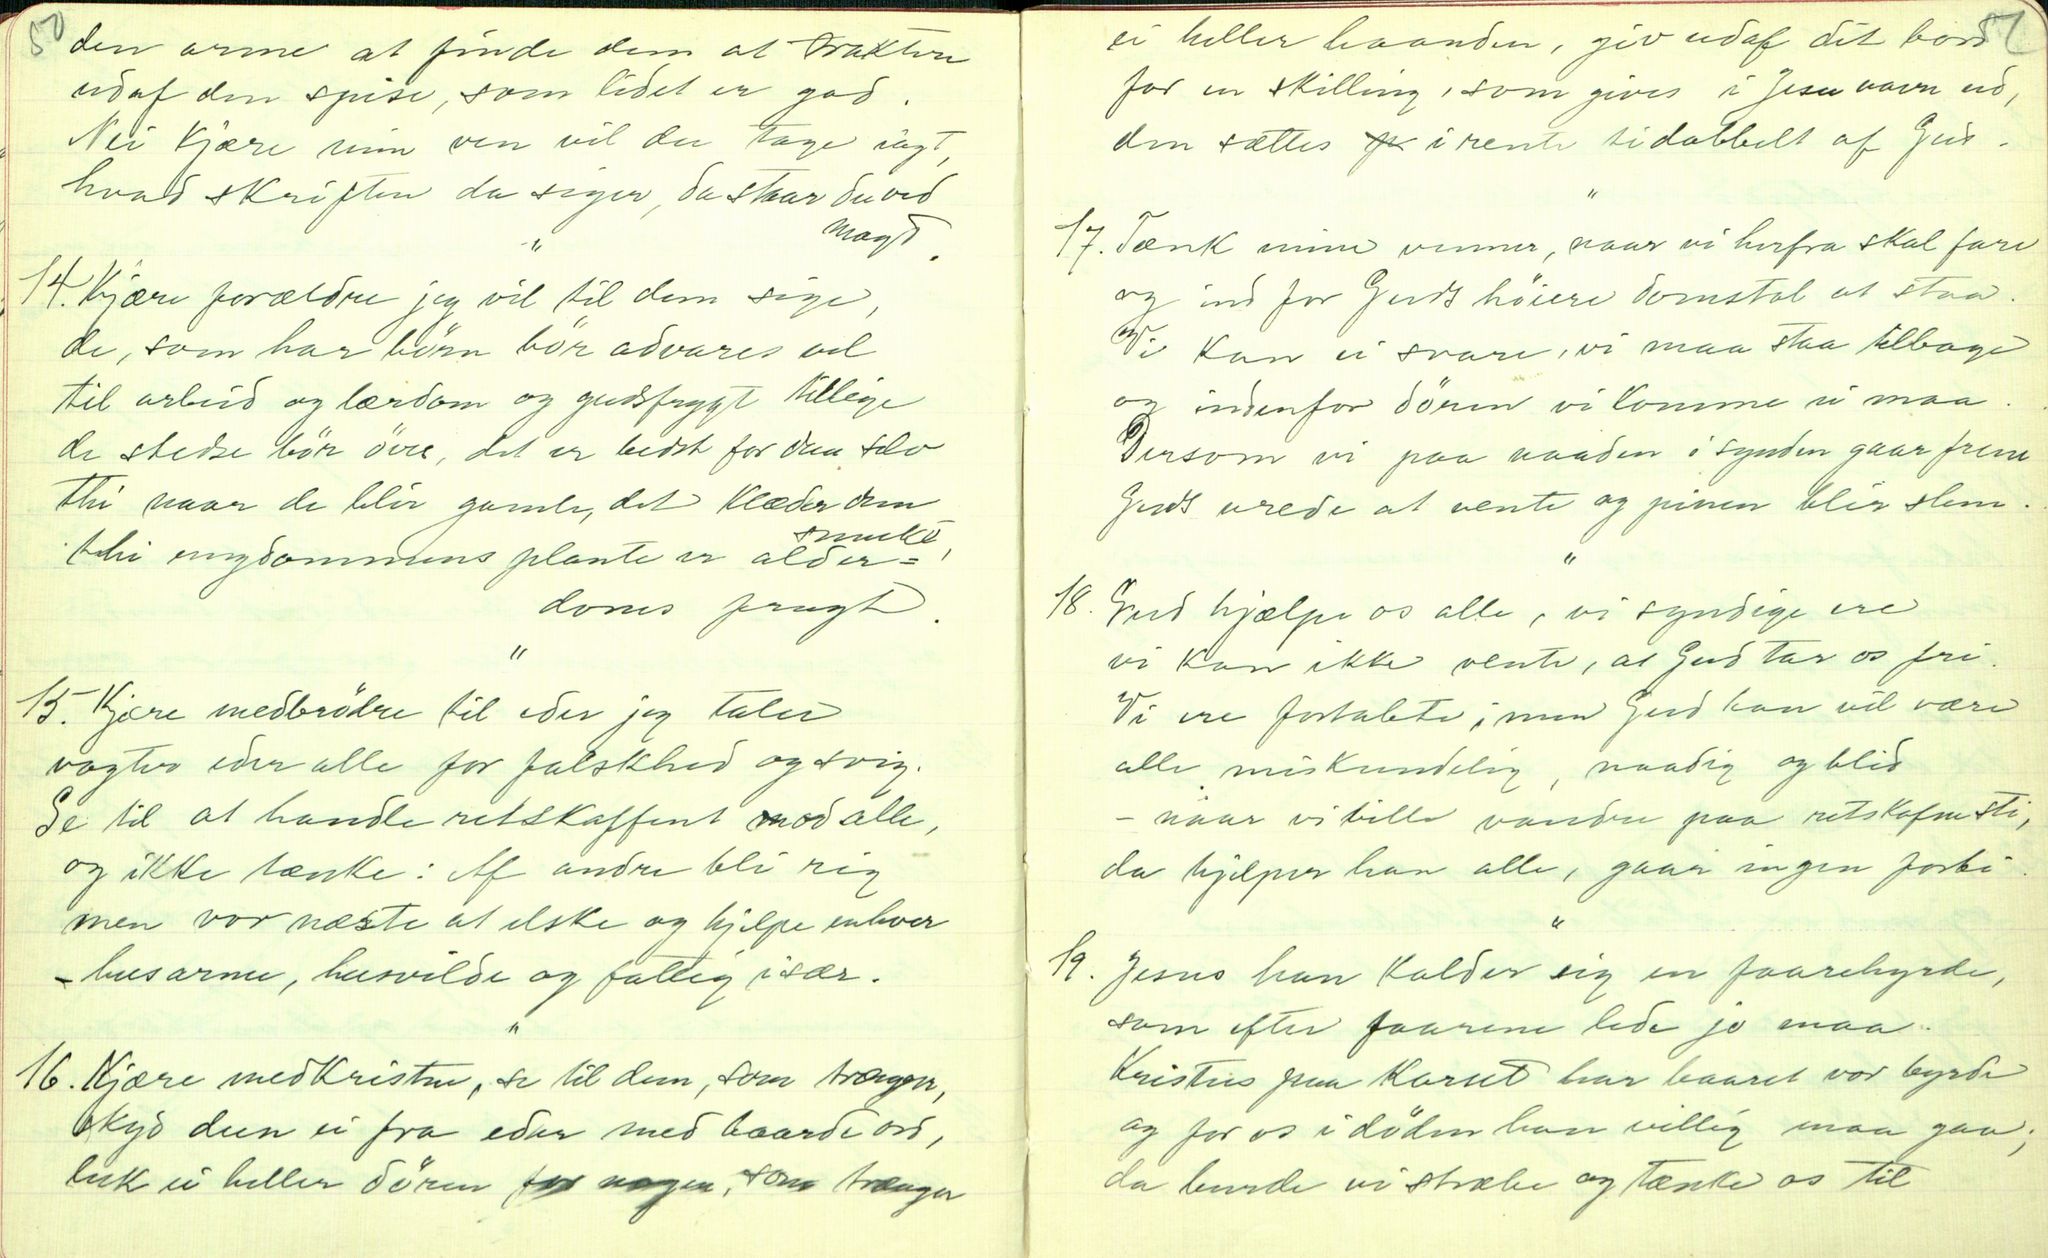 50
den arme at finde dem at traktere
udaf den spise, som lidet er god.
Nei Kjære min ven vil du tage iagt,
hvad skriften da siger, da staar du ved
magt.
"
14. Kjære forældre jeg vil til dem sige,
de, som har børn bör advares vel
til arbeid og lærdom og gudsfrygt tillige
de stedse bör öve, det er bedst for dem selv
thi naar de blir gamle, det klæder dem
smukt,
thi ungdommens plante er alder=
doms frugt.
"
15. Kjære medbrödre til eder jeg taler
vogter eder alle for falskhed og svig.
Se til at handle retskaffent mod alle,
og ikke tænke: Af andre bli rig
men vor næste at elske og hjelpe enhver
- husarme, husvilde og fattig især.
"
16. Kjære medkristne, se til dem, som trænger,
skyd dem ei fra eder med haarde ord,
luk ei heller dören for nogen, som trænger
51
ei heller haanden, giv udaf dit bord
for en skilling, som gives i Jesu navn ud,
den sættes i rente tidobbelt af Gud.
"
17. Tænk mine venner, naar vi herfra skal fare
og ind for Guds höiere domstol at staa.
Vi kan ei svare, vi maa staa tilbage
og indenfor dören vi komme ei maa.
Dersom vi paa naaden i synden gaar frem
Guds vrede at vente og pinen blir slem.
"
18. Gud hjælpe os alle, vi syndige ere
vi kan ikke vente, at Gud tar os fri.
Vi ere fortabte, men Gud han vil være
alle miskundelig, naadig og blid
- naar vi ville vandre paa retskafne sti,
da hjelper han alle, gaar ingen forbi.
"
19. Jesus han kalder sig en faarehyrde,
som efter faarene lede jo maa.
Kristus paa Korset har baaret vor byrde
og for os i döden han villig maa gaa;
da burde vi stræbe og tænke os til